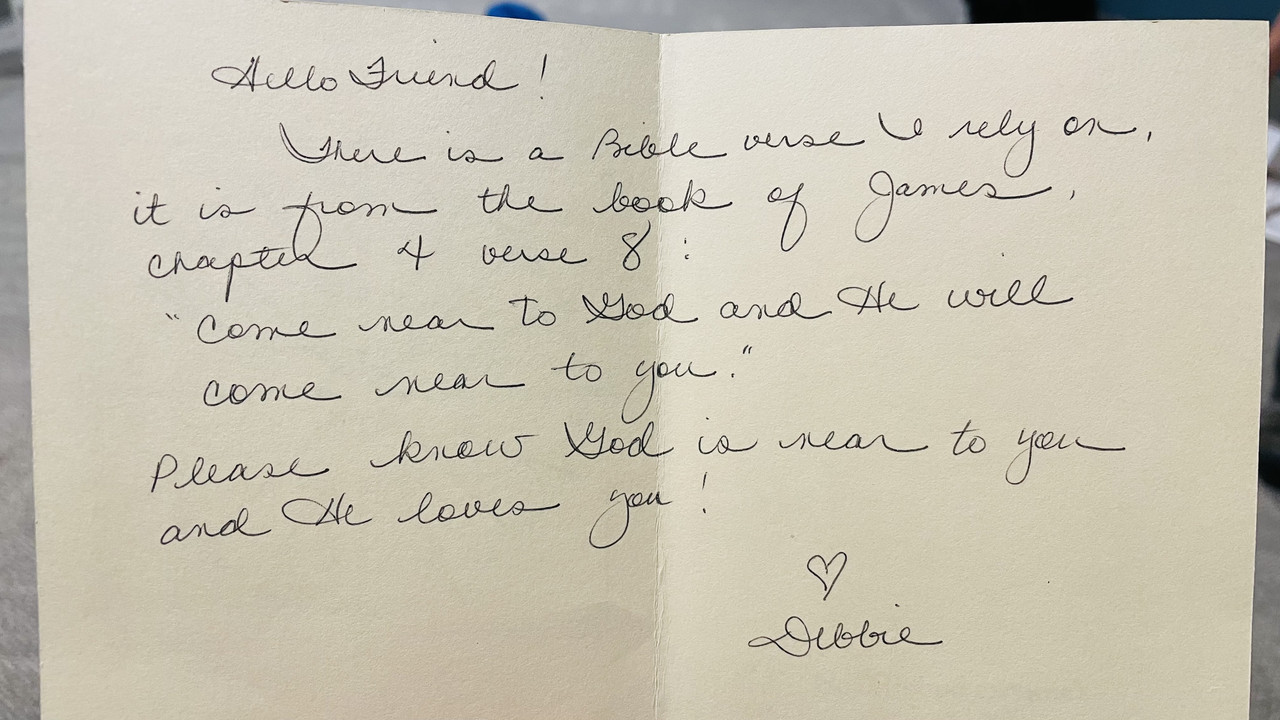 Hello Friend!
There is a Bible verse I rely on,
it is from the book of James,
chapter 4 verse 8:
"Come near to God and He will
come near to you."
Please know God is near to you
and He loves you!
♡
Debbie